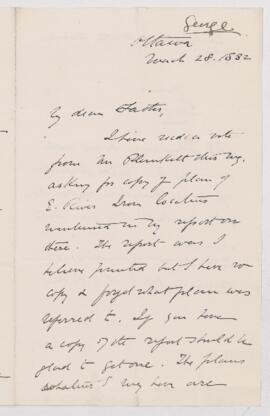 George
Ottawa
March 28. 1882
My dear Father,
I have rec'd a note
from Mr Plunkett this mg.
asking for copy of plan of
E. River Iron localities
mentioned in my report on
them. The report was I
believe printed but I have no
copy & forget what plan was
referred to. If you have
a copy of the report should be
glad to get one. The plans
whatever they have are